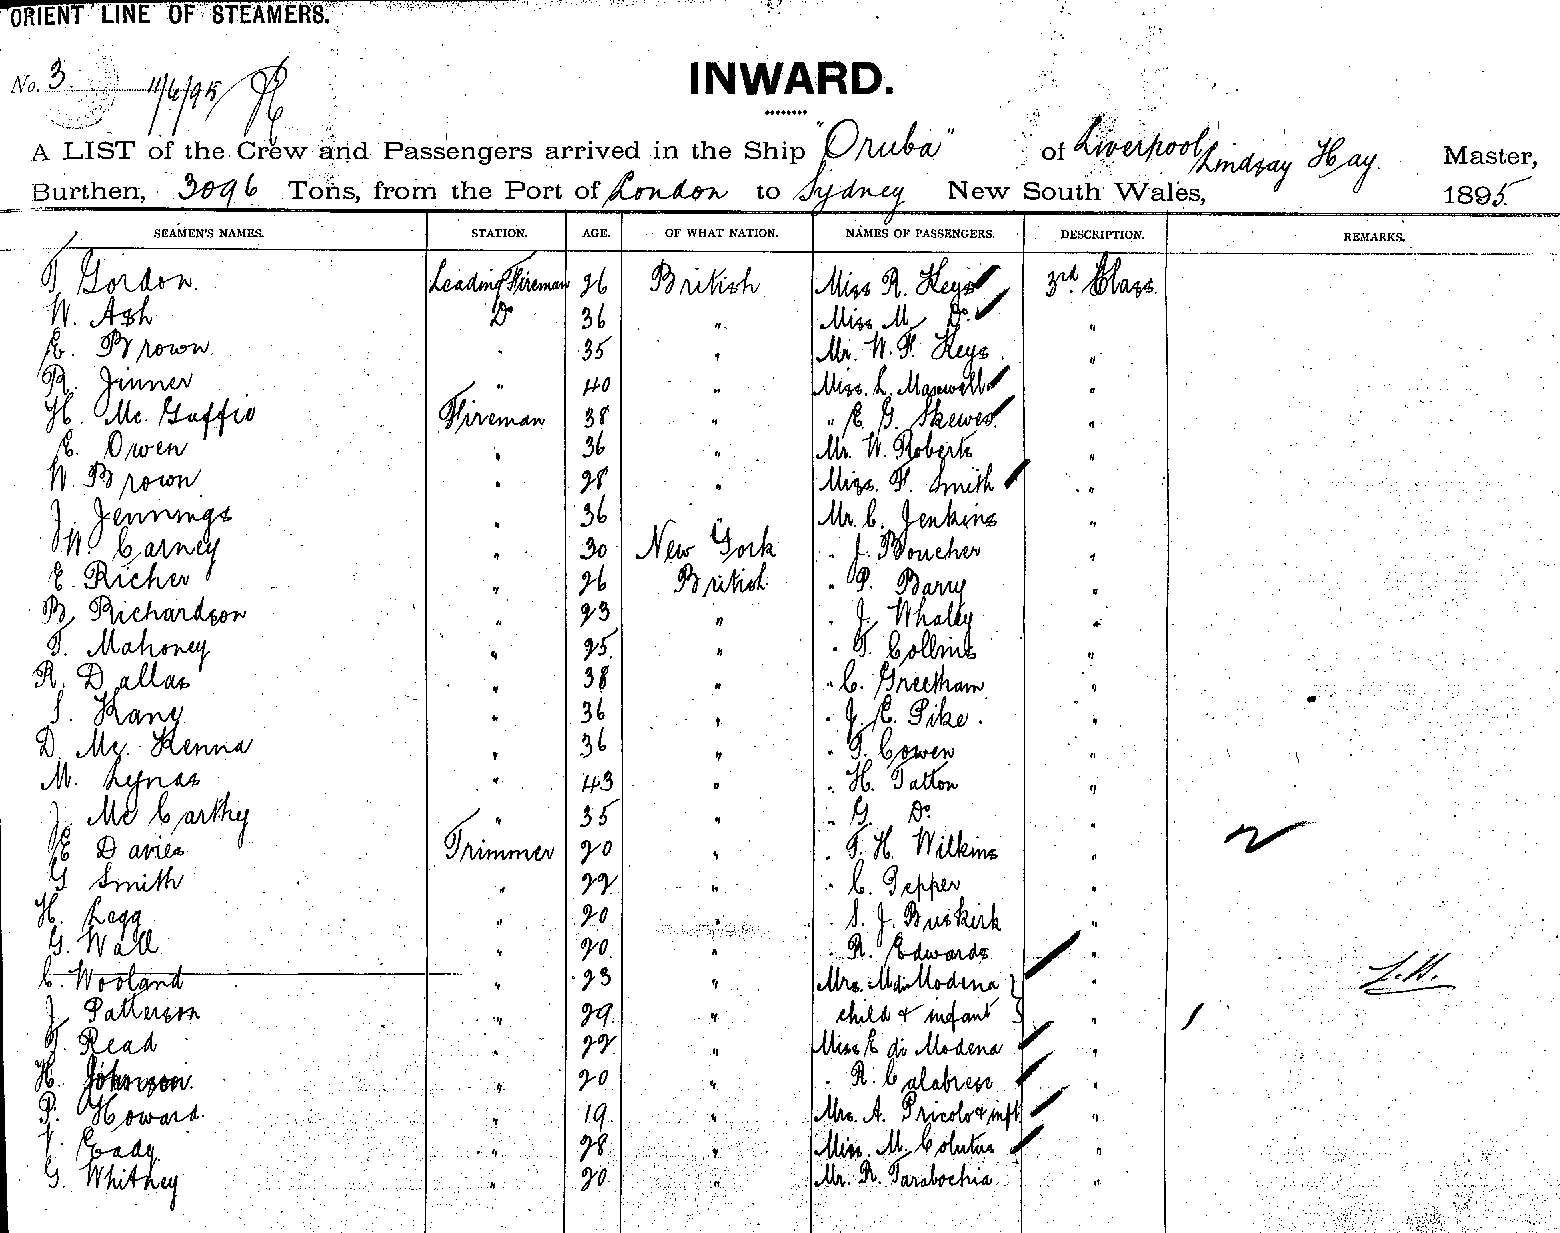 ORIENT LINE OF STEAMERS.
No. 3 11/6/95
INWARD.
A LIST of the Crew and Passengers arrived in the Ship "Oruba" of Liverpool, Lindsay Hay. Master,
Burthen, 3096 Tons, from the Port of London to Sydney New South Wales, 1895.
SEAMEN'S NAMES. STATION. AGE. OF WHAT NATION. NAMES OF PASSENGERS. DESCRIPTION. REMARKS.
T. Gordon. Leading Fireman 26 British Miss R. Keys 3rd Class
W. Ash Do 36 " Miss M. Do. "
E. Brown " 35 " Mr. W. F. Keys "
R. Jinner " 40 " Miss. L. Maxwell "
H. Mc. Guffie Fireman 38 " " E. G. Skewes "
E. Owen " 36 " Mr. W. Roberts "
W. Brown " 28 " Miss. F. Smith "
J. Jennings " 36 " Mr. C. Jenkins "
W. Carney " 30 New York " J. Boucher "
E. Richer " 26 British " P. Barry "
B. Richardson " 23 " " J. Whaley "
T. Mahoney " 25 " " T. Collins "
R. Dallas " 38 " " C. Greetham "
S. Kany " 36 " " J. E. Pike. "
D. Mc. Kenna " 36 " " T. Cowen "
M. Lynas " 43 " " H. Tatton "
J. Mc Carthy " 35 " " G. Do. "
E. Davies Trimmer 20 " " T. H. Wilkins "
G. Smith " 22 " " C. Pepper "
H. Legg " 20 " " S. J. Buskirk "
G. Wall " 20 " " R. Edwards "
C. Wooland " 23 " Mrs. M di Modena " L.H.
J. Patterson " 29 " child & infant "
T. Read " 22 " Miss E di Modena "
H. Johnson. " 20 " " R. Calabrese "
P. Howard. " 19 " Mrs. A. Pricolo & inft "
Eady " 28 " Miss. M. "
G. Whitney " 20 " Mr. R. Tarabochia "